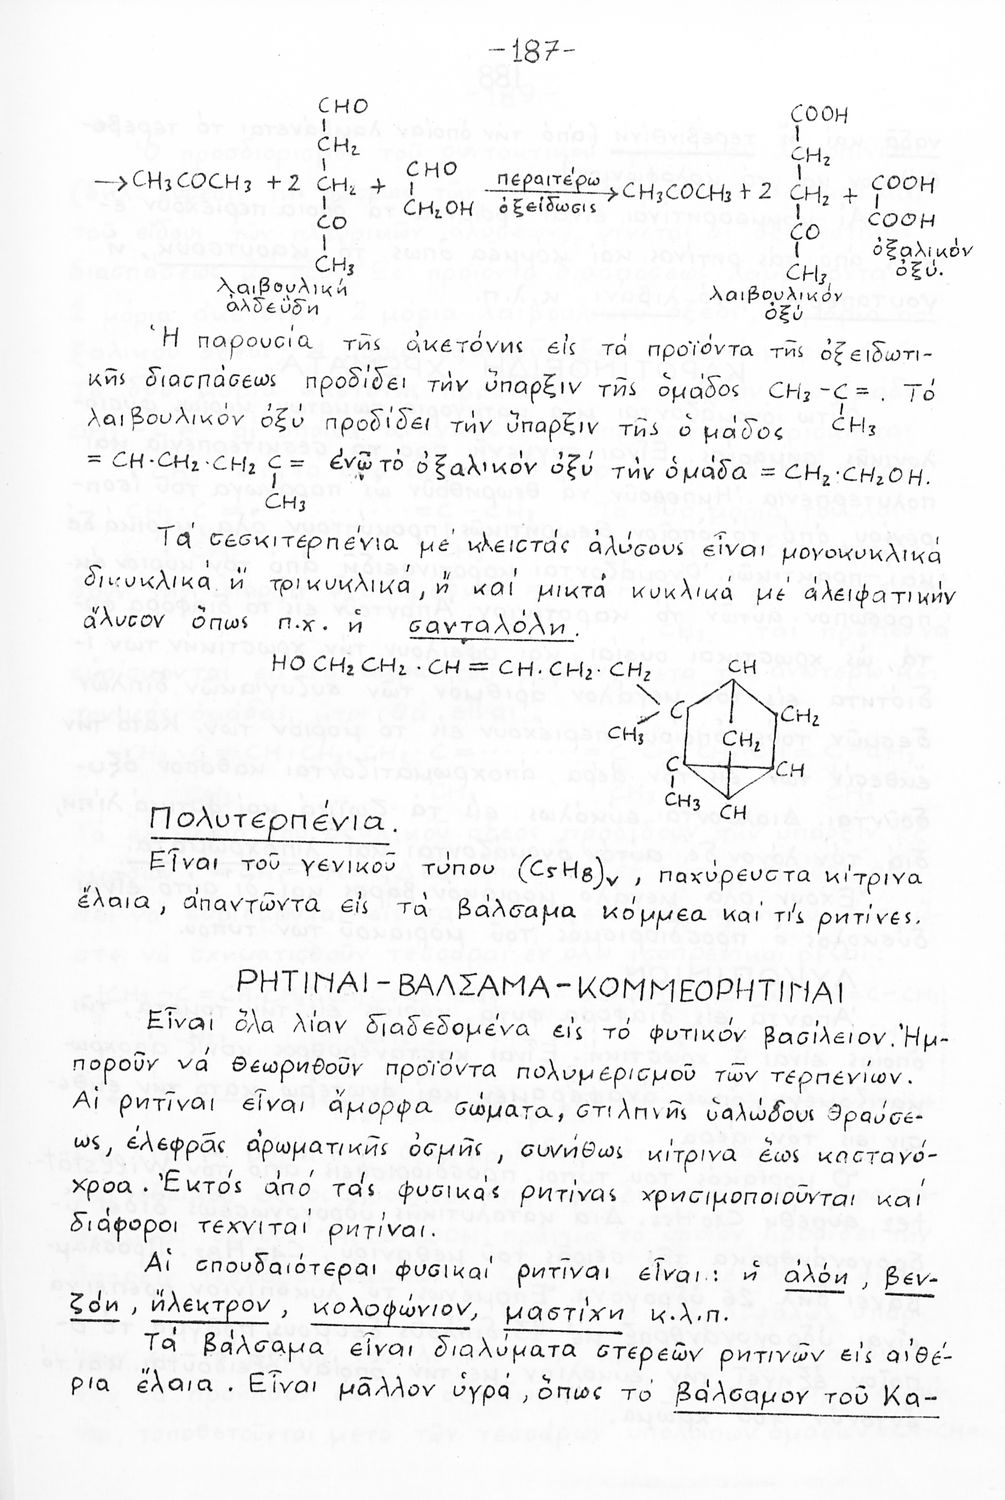 -187-
CHO
COOH
CH2
CH2
→CH3COCH3 + 2 CH2 + CHO περαιτέρω → CH3COCH3 + 2 CH2 + COOH
CH2OH ὀξείδωσις COOH
CO
CO
ὀξαλικόν
CH3
CH3
ὀξύ.
λαιβουλική
λαιβουλικόν
ἀλδεΰδη
ὀξύ
Ἡ παρουσία τῆς ἀκετόνης εἰς τά προϊόντα τῆς ὀξειδωτι-
κῆς διασπάσεως προδίδει τήν ὕπαρξιν τῆς ὁμάδος CH3-C=. Τό
λαιβουλικόν ὀξύ προδίδει τήν ὕπαρξιν τῆς ὁμάδος CH3
=CH·CH2·CH2 C= ἐνῶ τό ὀξαλικόν ὀξύ τήν ὁμάδα =CH2·CH2OH.
CH3
Τά σεσκιτερπένια μέ κλειστάς ἁλύσους εἶναι μονοκυκλικά
δικυκλικά ἤ τρικυκλικά, ἤ καί μικτά κυκλικά μέ ἀλειφατικήν
ἄλυσον ὅπως π.χ. ἡ σανταλόλη.
HO CH2 CH2 · CH = CH · CH2 · CH2 CH
C CH2
CH3 CH2
C CH
CH3 CH
Πολυτερπένια.
Εἶναι τοῦ γενικοῦ τύπου (C5H8)ν, παχύρευστα κίτρινα
ἔλαια, ἀπαντῶντα εἰς τά βάλσαμα κόμμεα καί τίς ρητίνες.
ΡΗΤΙΝΑΙ-ΒΑΛΣΑΜΑ-ΚΟΜΜΕΟΡΗΤΙΝΑΙ
Εἶναι ὅλα λίαν διαδεδομένα εἰς τό φυτικόν βασίλειον. Ἠμ-
ποροῦν νά θεωρηθοῦν προϊόντα πολυμερισμοῦ τῶν τερπενίων.
Αἱ ρητῖναι εἶναι ἄμορφα σώματα, στιλπνῆς ὑαλώδους θραύσε-
ως, ἐλεφρᾶς ἀρωματικῆς ὀσμῆς, συνήθως κίτρινα ἕως καστανό-
χροα. Ἐκτός ἀπό τάς φυσικάς ρητίνας χρησιμοποιοῦνται καί
διάφοροι τεχνιταί ρητίναι.
Αἱ σπουδαιότεραι φυσικαί ρητῖναι εἶναι: ἡ ἀλόη, βεν-
ζόη, ἤλεκτρον, κολοφώνιον, μαστίχη κ.λ.π.
Τά βάλσαμα εἶναι διαλύματα στερεῶν ρητινῶν εἰς αἰθέ-
ρια ἔλαια. Εἶναι μᾶλλον ὑγρά, ὅπως τό βάλσαμον τοῦ Κα-